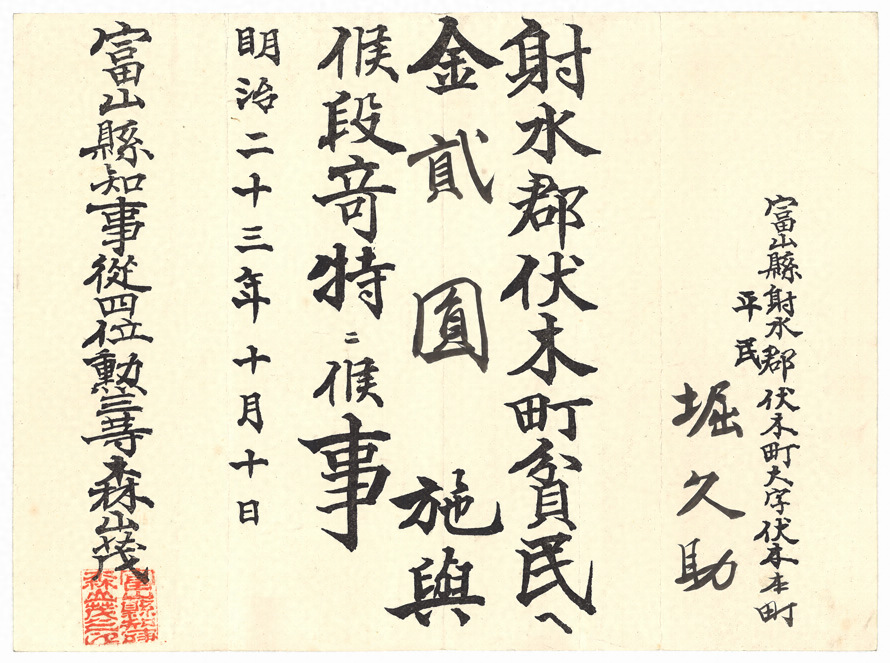 富山縣射水郡伏木町大字伏木本町
平民
堀久助
射水郡伏木町貧民へ
金貳圓施與
候段竒特ニ候事
明治二十三年十月十日
富山縣知事從四位勲三等森山茂